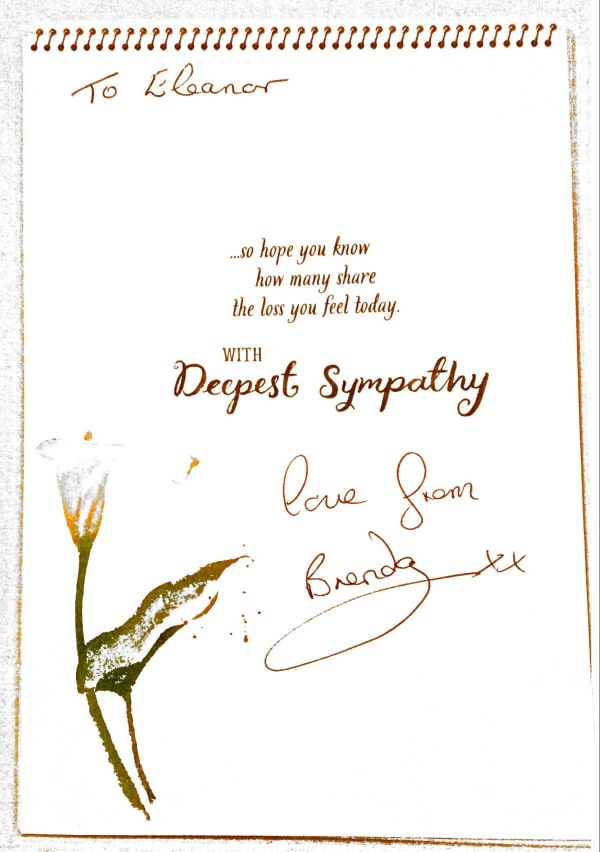 To Eleanor
...so hope you know
how many share
the loss you feel today.
WITH
Deepest Sympathy
love from
Brenda xx